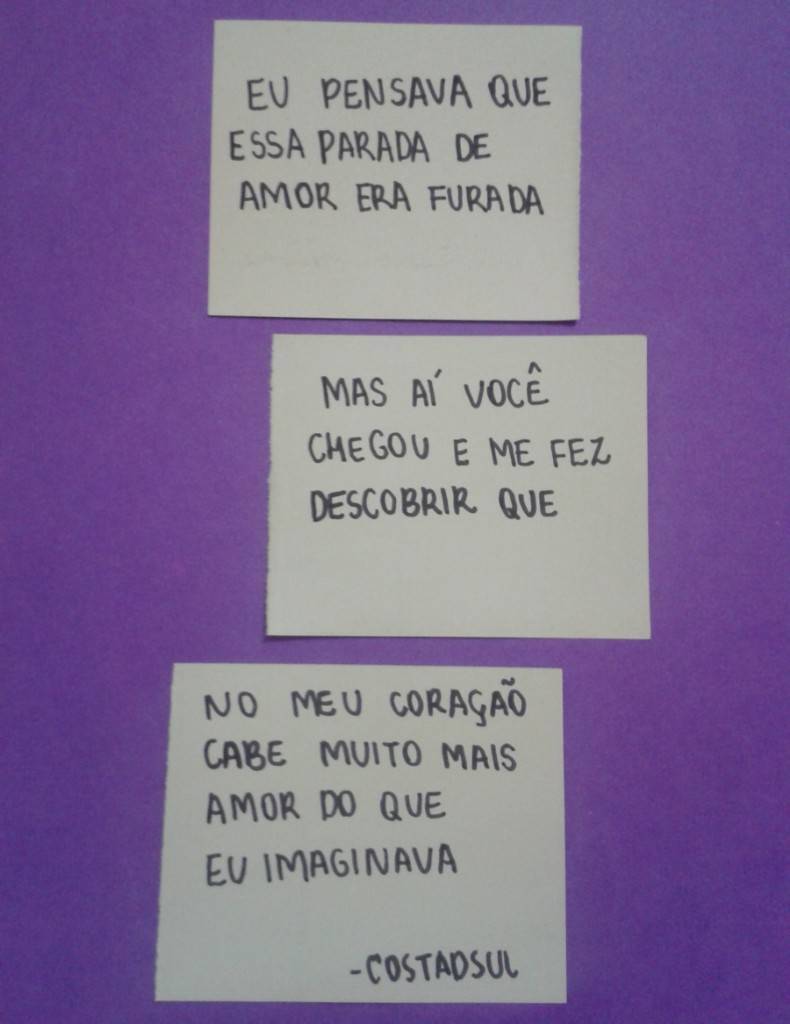 EU PENSAVA QUE
ESSA PARADA DE
AMOR ERA FURADA
MAS AÍ VOCÊ
CHEGOU E ME FEZ
DESCOBRIR QUE
NO MEU CORAÇÃO
CABE MUITO MAIS
AMOR DO QUE
EU IMAGINAVA
-COSTADSUL